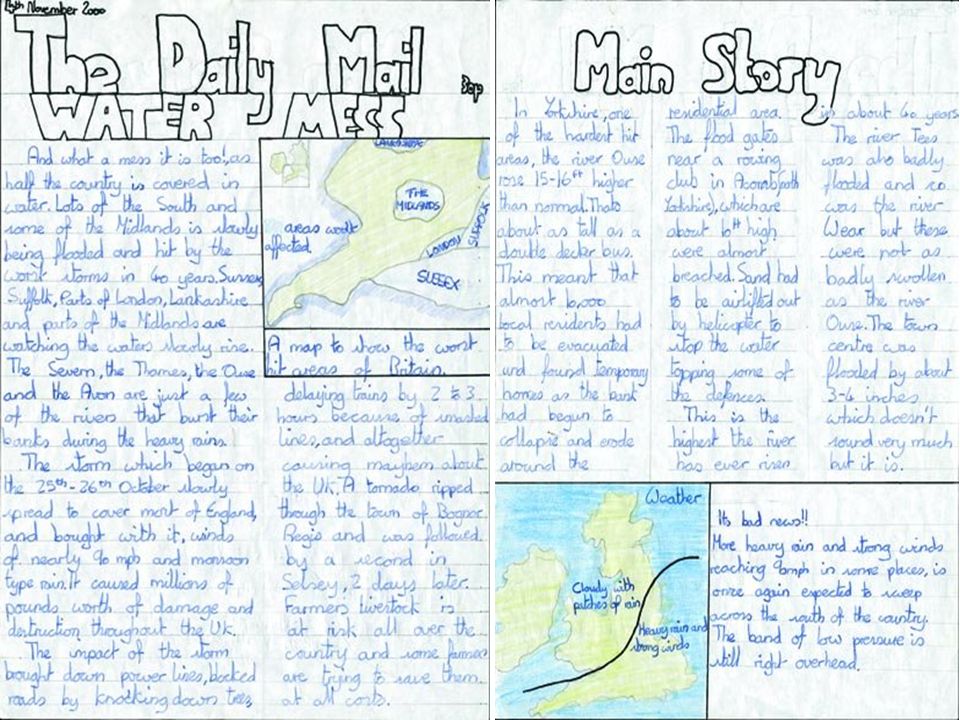 15th November 2000
The Daily Mail
30p
WATER MESS
And what a mess it is too!, as
half the country is covered in
water. Lots of the South and
some of the Midlands is slowly
being flooded and hit by the
worst storms in 40 years. Sussex,
Suffolk, Parts of London, Lankashire
and parts of the Midlands are
watching the waters slowly rise.
The Severn, the Thames, the Ouse
and the Avon are just a few
of the rivers that burst their
banks during the heavy rains.
The storm which began on
the 25th-26th October slowly
spread to cover most of England,
and bought with it, winds
of nearly 90 mph and monsoon
type rain. It caused millions of
pounds worth of damage and
destruction throughout the UK.
The impact of the storm
brought down power lines, blocked
roads by knocking down trees,
LANKASHIRE
THE
MIDLANDS
areas worst
affected.
LONDON
SUFFOLK
SUSSEX
A map to show the worst
hit areas of Britain.
delaying trains by 2 to 3
hours because of
lines, and altogether
causing mayhem about
the UK. A tornado ripped
through the town of Bognor
Regis and was followed
by a second in
Selsey, 2 days later.
Farmers livestock is
at risk all over the
country and some farmers
are trying to save them
at all costs.
Main Story
In Yorkshire, one
of the hardest hit
areas, the river Ouse
rose 15-16ft higher
than normal. Thats
about as tall as a
double decker bus.
This meant that
almost 6,000
local residents had
to be evacuated
and found temporary
homes as the bank
had begun to
collapse and erode
around the
residential area.
The flood gates
near a rowing
club in
Yorkshire), which are
about 16ft high
were almost
breached. Sand had
to be airlifted out
by helicopter to
stop the water
topping some of
the defences.
This is the
highest the river
has ever risen
in about 40 years
The river Tees
was also badly
flooded and so
was the river
Wear but these
were not as
badly swollen
as the river
Ouse. The town
centre was
flooded by about
3-4 inches
which doesn't
sound very much
but it is.
Weather
Cloudy with
pitches of rain
Heavy rain and
strong winds
Its bad news!!
More heavy rain and strong winds
reaching 90mph in some places, is
once again expected to sweep
across the south of the country.
The band of low pressure is
still right overhead.